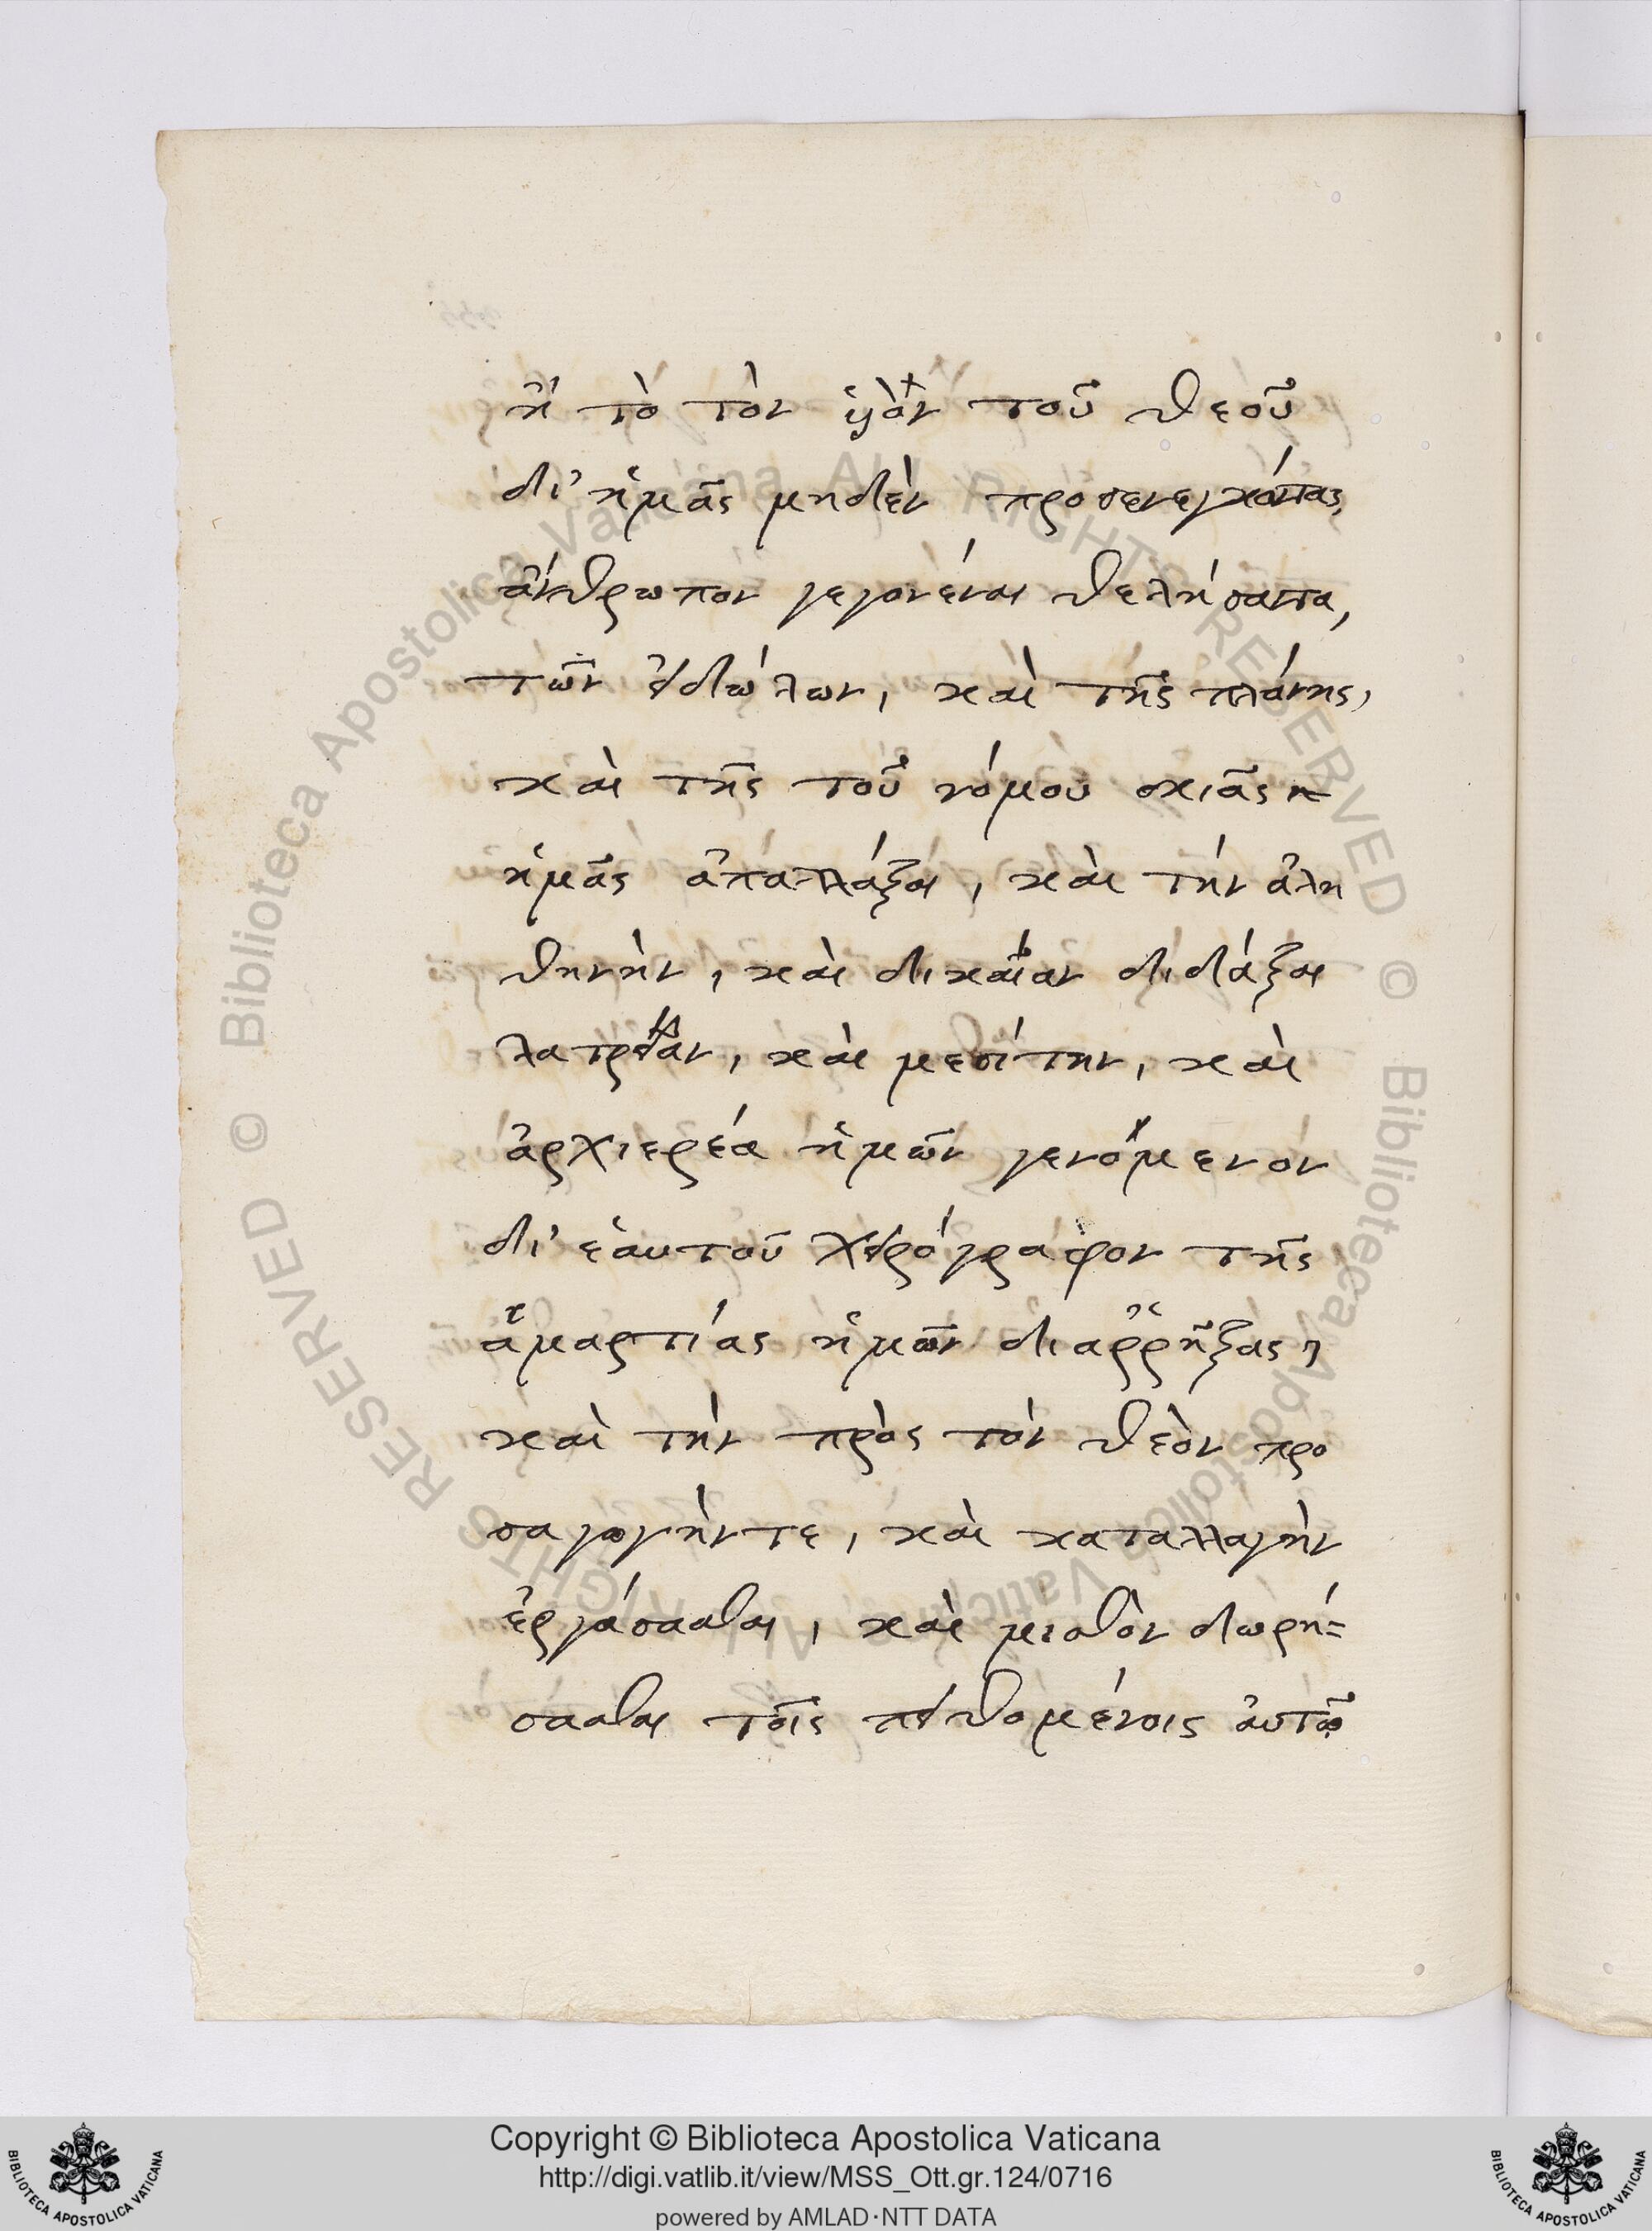 ἢ τὸ τὸν ὑὸν τοῦ θεοῦ
δι' ἡμᾶς μηδὲν προσενεγκόντας,
ἄνθρωπον γεγονέναι θελήσαντα,
τῶν εἰδώλων, καὶ τῆς πλάνης,
καὶ τῆς τοῦ νόμου σκιᾶς
ἡμᾶς ἀπαλλάξαι, καὶ τὴν ἀλη
θηνὴν, καὶ δικαίαν διδάξαι
λατρείαν, καὶ μεσίτην, καὶ
ἀρχιερέα ἡμῶν γενόμενον
δι' ἑαυτοῦ χειρόγραφον τῆς
ἁμαρτίας ἡμῶν διαῤῥῆξας,
καὶ τὴν πρὸς τὸν θεὸν προ
σαγωγήν τε, καὶ καταλλαγὴν
ἐργάσασθαι, καὶ μισθὸν δωρή=
σασθαι τοῖς πειθομένοις αὐτῷ
© Biblioteca Apostolica Vaticana ALL RIGHTS RESERVED © Biblioteca Apostolica Vaticana ALL RIGHTS RESERVED
Copyright © Biblioteca Apostolica Vaticana
http://digi.vatlib.it/view/MSS_Ott.gr.124/0716
powered by AMLAD·NTT DATA
BIBLIOTECA APOSTOLICA VATICANA
BIBLIOTECA APOSTOLICA VATICANA